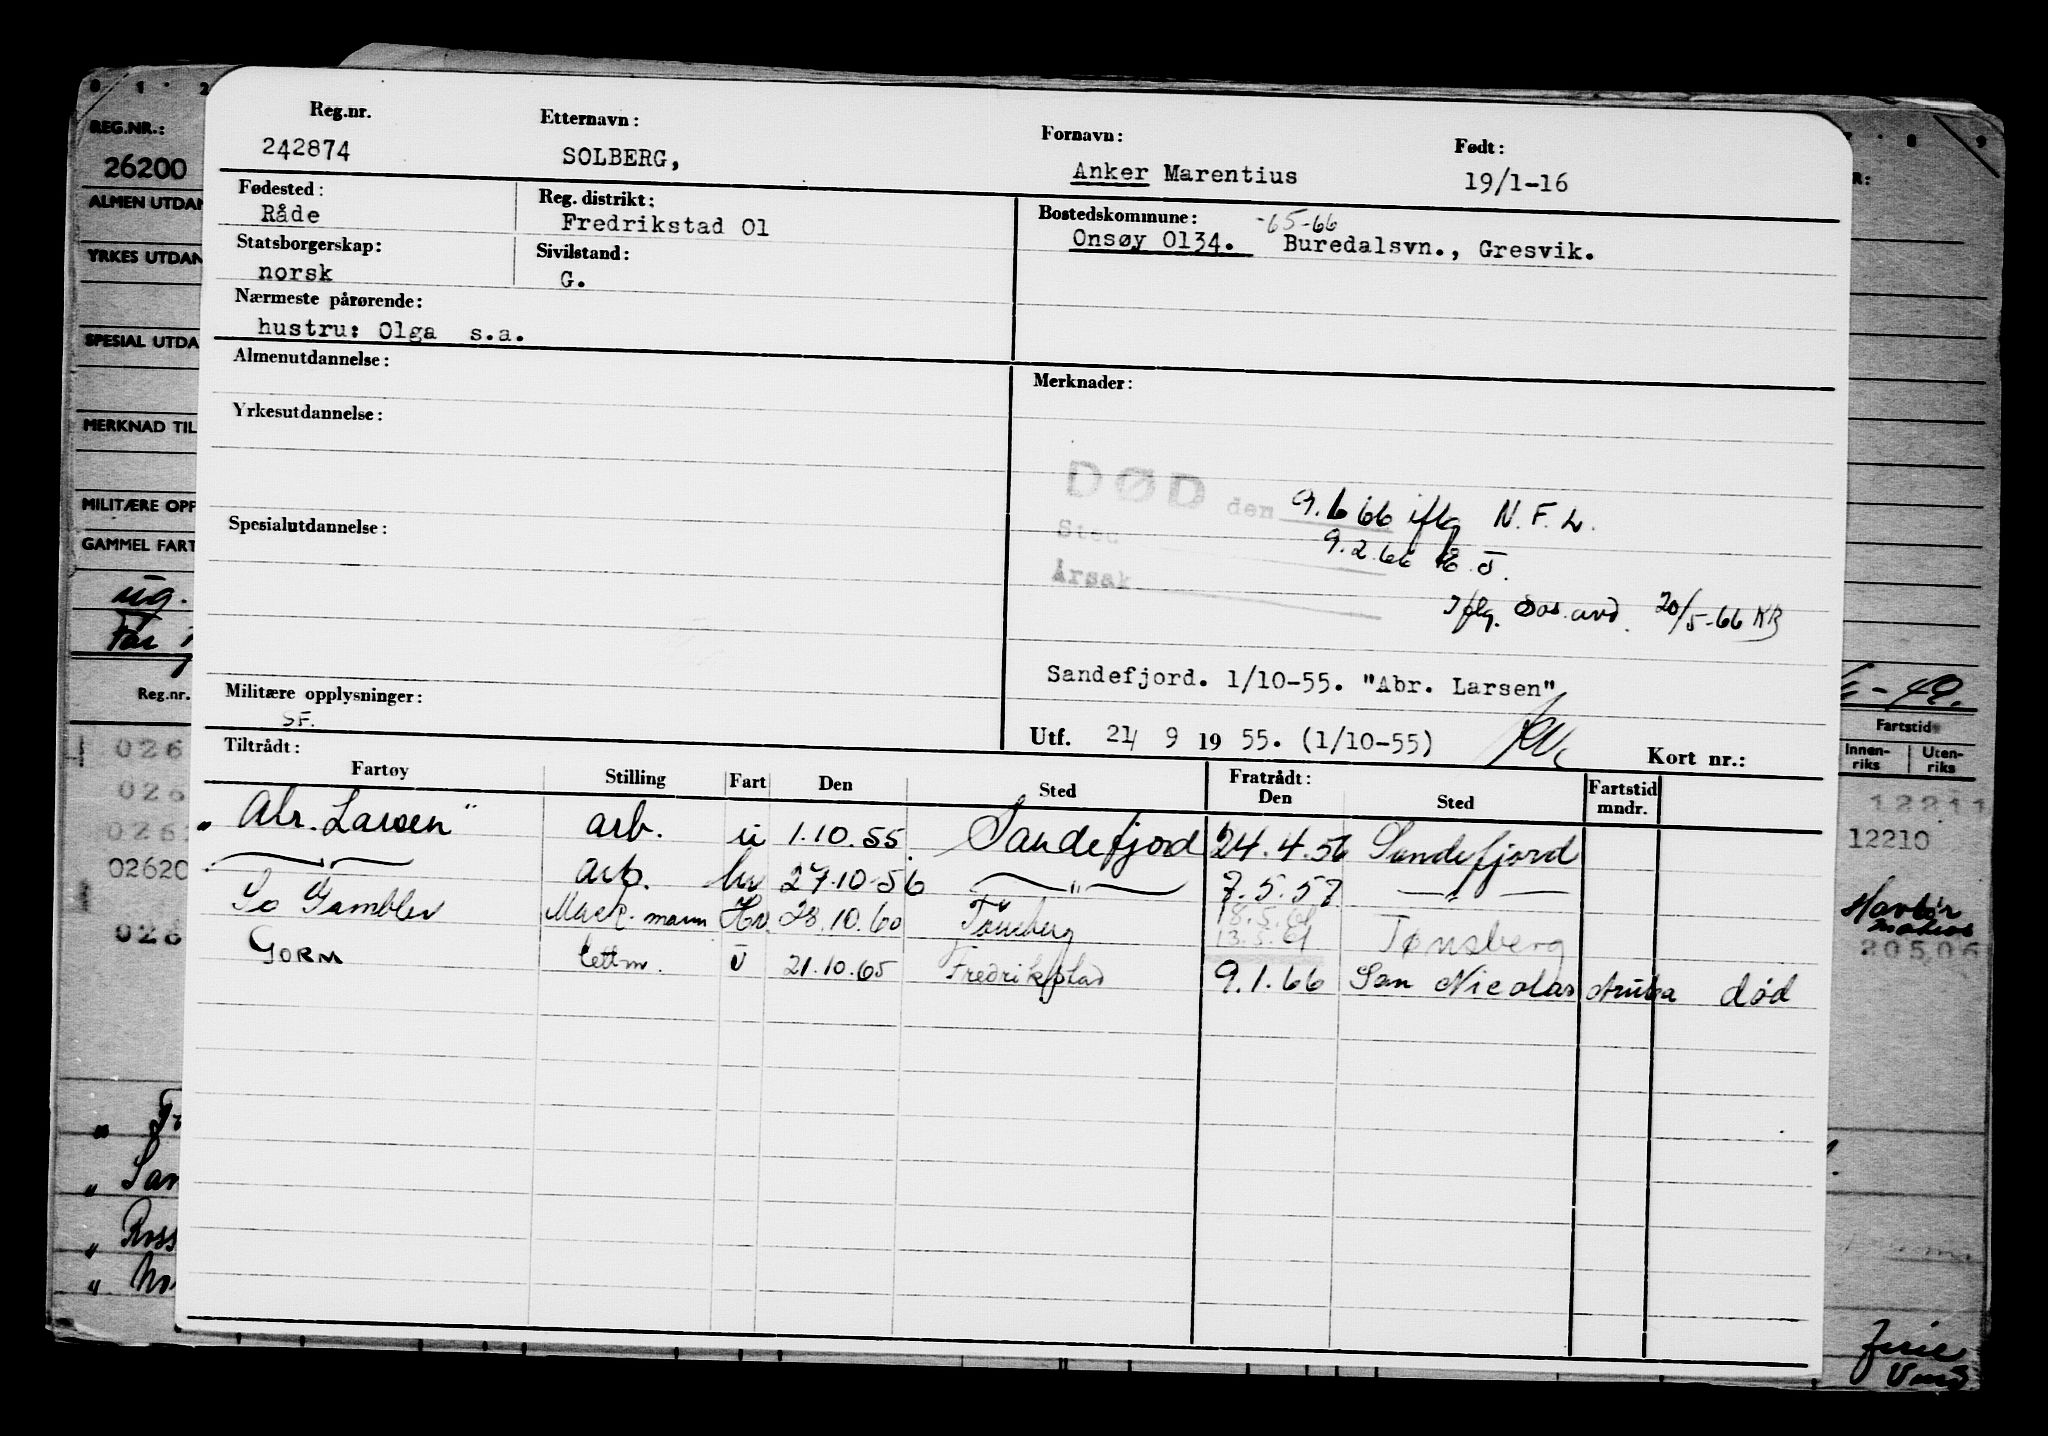 Reg.nr. Etternavn: Fornavn: Født:
242874 SOLBERG, Anker Marentius 19/1-16
Fødested: Reg. distrikt: Bostedskommune: -65-66
Råde Fredrikstad 01 Onsøy 0134. Buredalsvn., Gresvik.
Statsborgerskap: Sivilstand:
norsk G.
Nærmeste pårørende:
hustru: Olga s.a.
Almenutdannelse: Merknader:
Yrkesutdannelse:
DØD den 9.1 66 iflg N.F.L.
Sted 9.2.66
Årsak
Spesialutdannelse:
Iflg. Sos. avd. 20/5-66 KB
Sandefjord. 1/10-55. "Abr. Larsen"
Militære opplysninger:
SF.
Utf. 21/ 9 19 55. (1/10-55) Kort nr.:
Tiltrådt: Fratrådt:
Fartøy Stilling Fart Den Sted Den Sted Fartstid mndr.
"Abr. Larsen" arb. u 1.10.55. Sandefjord 24.4.56 Sandefjord
— " — arb. hv 27.10.56 — " — 7.5.57 — " —
So Gambler Mask. mann Hv 28.10.60 Tönsberg 18.5.61 13.5.61 Tønsberg
GORM lettm. U 21.10.65 Fredrikstad 9.1.66 San Nicolas Aruba død
REG.NR.:
26200
ALMEN UTDAN
YRKES UTDAN
SPESIAL UTDA
MERKNAD TIL
MILITÆRE OPP
GAMMEL FART
Reg.nr.
026
026
026
02620
026
Fartstid
Innen-riks Uten-riks
12211
12210
20506